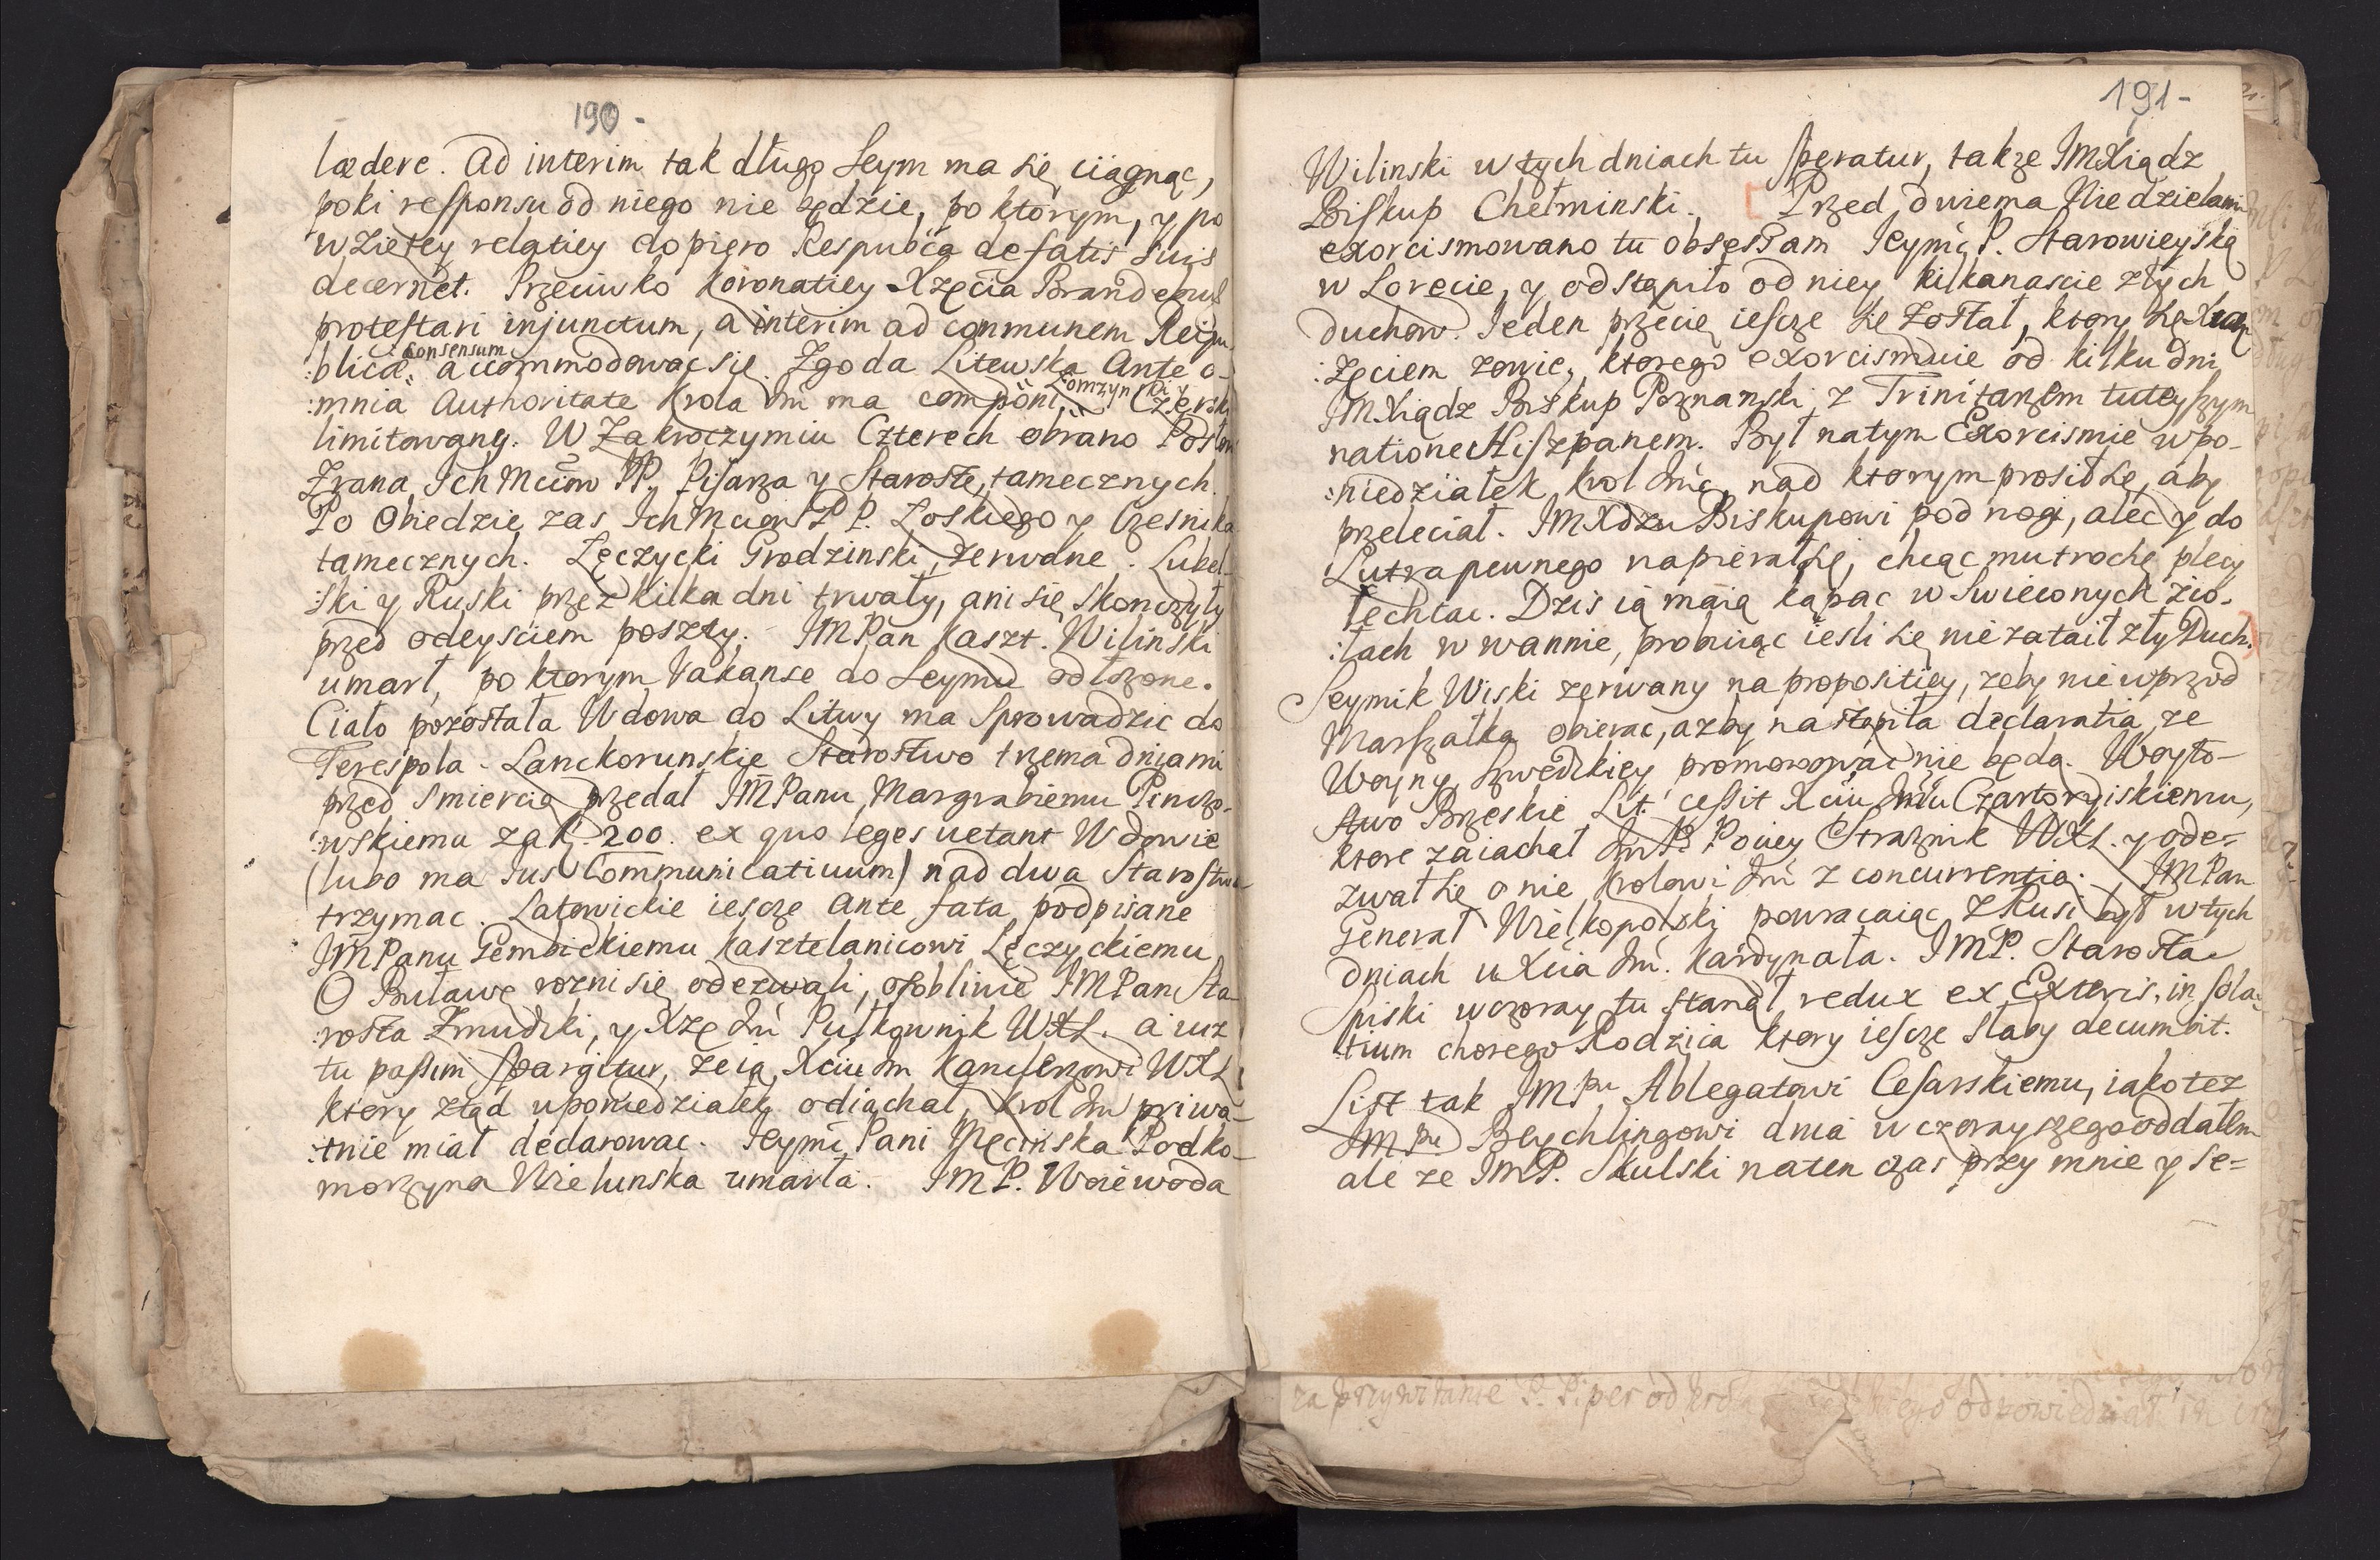 190 -
lædere. Ad interim tak długo Seym ma się ciągnąc,
poki responsu od niego nie będzie, po ktorym, y po
wziętey relatiey dopiero Respubca de fatis suis
decernet. Przeciwko Koronatiey Xzęcia Brandebur
protestari injunctum, a interim ad communem Reipu
blicæ consensum accommodowac się. Zgoda Litewska Ante o-
:mnia Authoritate Krola Jm ma componi. Łomzyn y Czerski
limitowany. W Zakroczymiu Czterech obrano Posłow
Zrana Ich Mciow PP. Pisarza y Starostę tamecznych.
Po Obiedzie zas Ich Mciow PP. Łoskiego y Czesnika
tamecznych. Łęczycki Grodzinski zerwane. Lubel-
:ski y Ruski przez kilka dni trwały, ani się skonczyły
przed odeysciem poszty. JMPan Kaszt. Wilinski
umarł, po ktorym Vakanse do Seymu odłozone.
Ciało pozostała Wdowa do Litwy ma sprowadzic do
Terespola. Lanckorunskie Starostwo trzema dniami
przed smiercią przedał JMPanu Margrabiemu Pinczo-
:wskiemu za 200. ex quo leges uetant Wdowie
(lubo ma Jus Communicatiuum) nad dwa Starostwa
trzymac. Latowickie iescze Ante fata podpisane
JMPanu Gembickiemu Kasztelanicowi Łęczyckiemu
O Buławę rozni się odezwali, osobliwie JMPan Sta
:rosta Zmudzki, y Xzę Jm Pułkownik WXL. a iuz
tu passim spargitur, ze ią Xciu Jm Kanclerzowi WXL
ktory ztąd w poniedziałek odiachał, Krol Jm priwa-
:tnie miał declarowac. Jeymc Pani Męcinska Podko-
morzyna Wielunska umarła. JMP. Woiewoda
191 -
Wilinski w tych dniach tu speratur, takze JMXiądz
Biskup Chełminski. [ Przed dwiema Niedzielami
exorcismowano tu obsessam Jeymc P. Starowieyską
w Lorecie, y odstąpiło od niey kilkanascie złych
duchow. Jeden przecie iescze się został, ktory się Xią
:zęciem zowie, ktorego exorcismuie od kilku dni
JMXiądz Biskup Poznanski z Trinitarzem tuteyszym
natione Hiszpanem. Był na tym Exorcismie w po-
:niedziałek Krol Jmc, nad ktorym prosił się, aby
przeleciał. JMXdzu Biskupowi pod nogi, alec y do
Lutra pewnego napierał się, chcąc mu trochę plecy
łechtac. Dzis ią maią kąpac w swieconych zio-
:łach w wannie, probuiąc iesli się nie zataił zły Duch. ]
Seymik Wiski zerwany na propositiey, zeby nie wprzod
Marszałka obierac, azby nastąpiła declaratia, ze
Woyny Szwedzkiey promowować nie będą. Woyto-
stwo Brzeskie Lit. cessit Xciu Jmciu Czartoryiskiemu,
ktore zaiachał JmP. Pociey Straznik WXL. y ode=
zwał się o nie Krolowi Jm z concurrentią. JMPan
Generał Wielkopolski powracaiąc z Rusi był w tych
dniach u Xcia Jm. Kardynała. JMP. Starosta
Spiski wczoray tu stanął redux ex Exteris, in sola
:tium chorego Rodzica ktory iescze słaby decumbit.
List tak JMPu Ablegatowi Cesarskiemu, iako tez
JmPu Beychlingowi dnia wczorayszego oddałem
ale ze JMP. Skulski na ten czas przy mnie y se=
za przywitanie P. Piper od odpowiedział